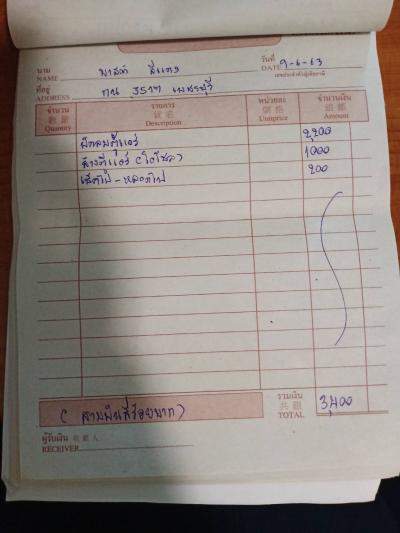 นาม NAME มาสด้า สีแดง วันที่ DATE 9-6-63
เลขประจำตัวผู้เสียภาษี
ที่อยู่ ADDRESS กน 3572 เพชรบุรี
จำนวน 數量 Quantity รายการ 貨名 Description หน่วยละ 價格 Unitprice จำนวนเงิน 銀額 Amount
พัดลมตู้แอร์ 2,200
ล้างตู้แอร์ (โบโซล่า) 1000
- หลอดไฟ 200
( สามพันสี่ร้อยบาท ) รวมเงิน 共銀 TOTAL 3,400
ผู้รับเงิน 收銀人
RECEIVER